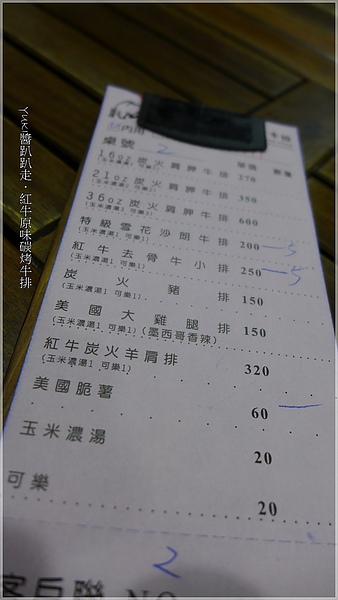 Yuki醬趴趴走．紅牛原味碳烤牛排
內用
桌號 2 單價 數量
16oz炭火肩胛牛排 270
(玉米濃湯1 可樂1)
21oz炭火肩胛牛排 350
(玉米濃湯1 可樂1)
36oz炭火肩胛牛排 600
(玉米濃湯1 可樂1)
特級雪花沙朗牛排 200
(玉米濃湯1 可樂1)
紅牛去骨牛小排 250
(玉米濃湯1 可樂1)
炭火豬排 150
(玉米濃湯1 可樂1)
美國大雞腿排 150
(玉米濃湯1 可樂1)(墨西哥香辣)
紅牛炭火羊肩排 320
(玉米濃湯1 可樂1)
美國脆薯 60 一
玉米濃湯 20
可樂 20
2
客戶聯 NO